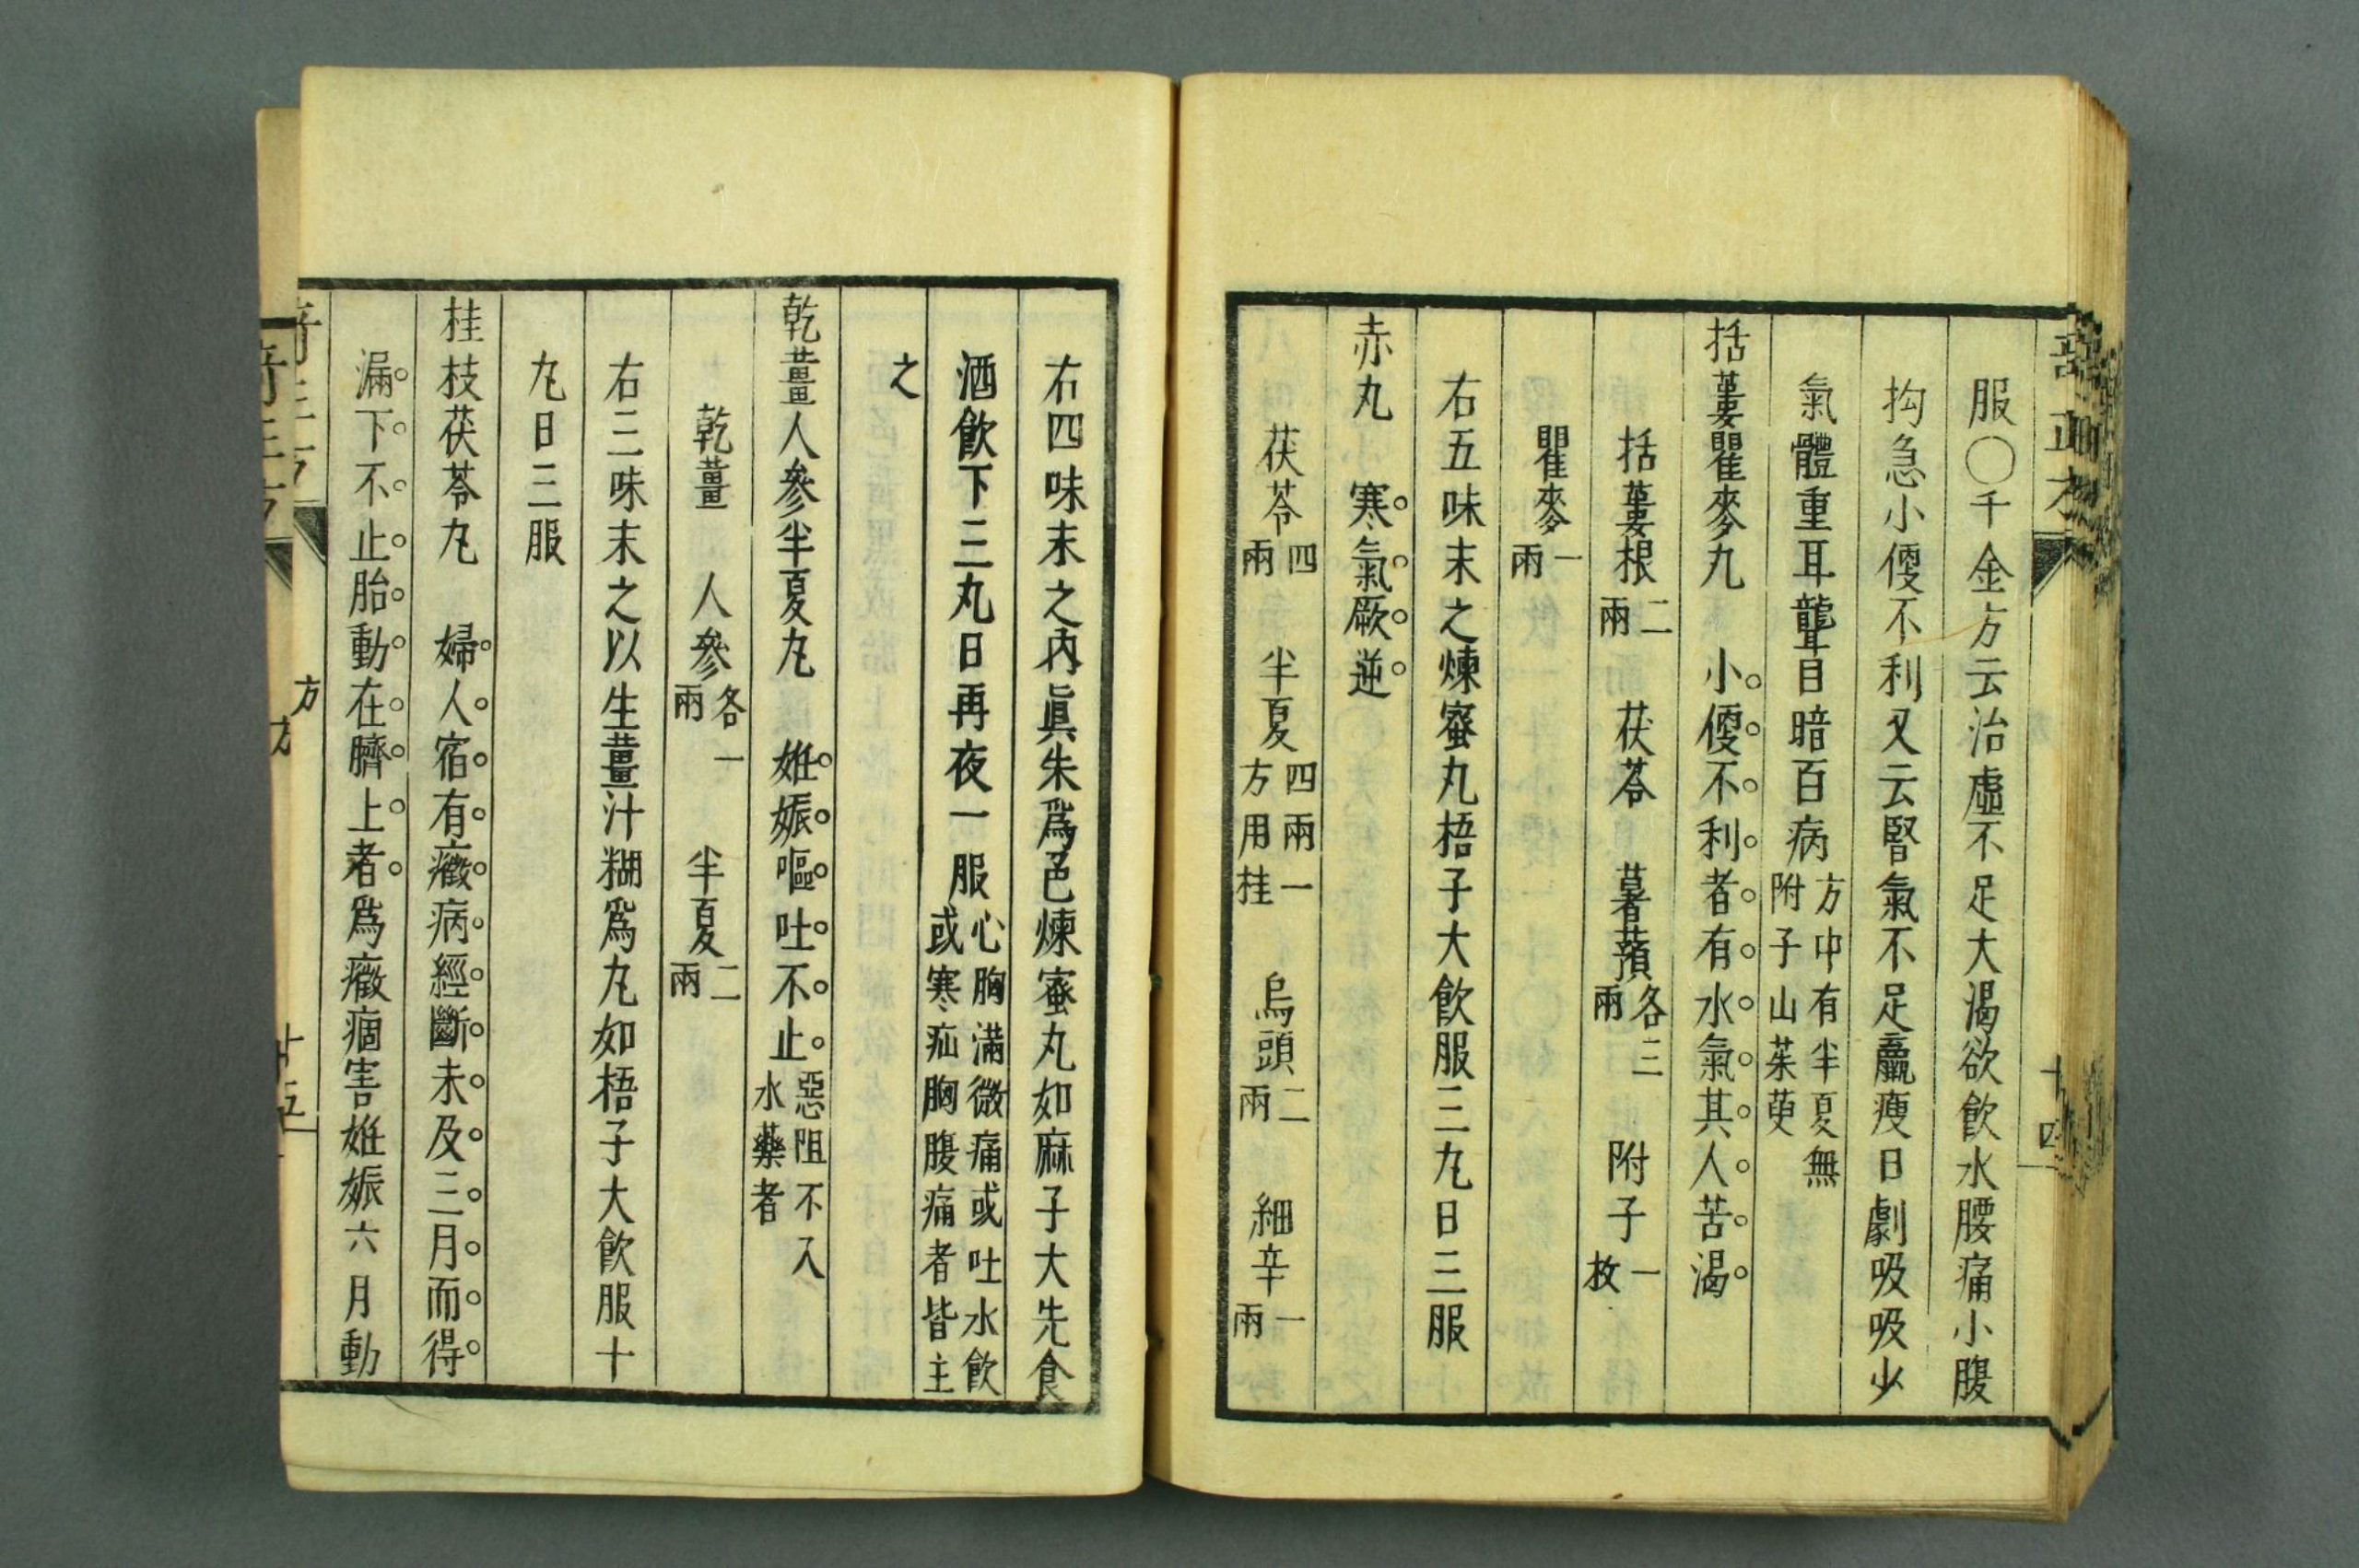 服○千金方云治虛不足大渴欲飲水腰痛小腹
拘急小便不利又云腎氣不足羸瘦日劇吸吸少
氣體重耳聾目暗百病方中有半夏無附子山茱萸
括蔞瞿麥丸 小便不利者有水氣其人苦渴
括蔞根二兩 茯苓 薯蕷各三兩 附子一枚
瞿麥一兩
右五味末之煉蜜丸梧子大飲服三丸日三服
赤丸 寒氣厥逆
茯苓四兩 半夏四兩一方用桂 烏頭二兩 細辛一兩
十四
右四味末之內眞朱爲色煉蜜丸如麻子大先食
酒飲下三丸日再夜一服心胸滿微痛或吐水飲或寒疝胸腹痛者皆主
之
乾薑人參半夏丸 姙娠嘔吐不止惡阻不入水藥者
乾薑 人參各一兩 半夏二兩
右三味末之以生薑汁糊爲丸如梧子大飲服十
丸日三服
桂枝茯苓丸 婦人宿有癥病經斷未及三月而得
漏下不止胎動在臍上者爲癥痼害姙娠六月動
方
方